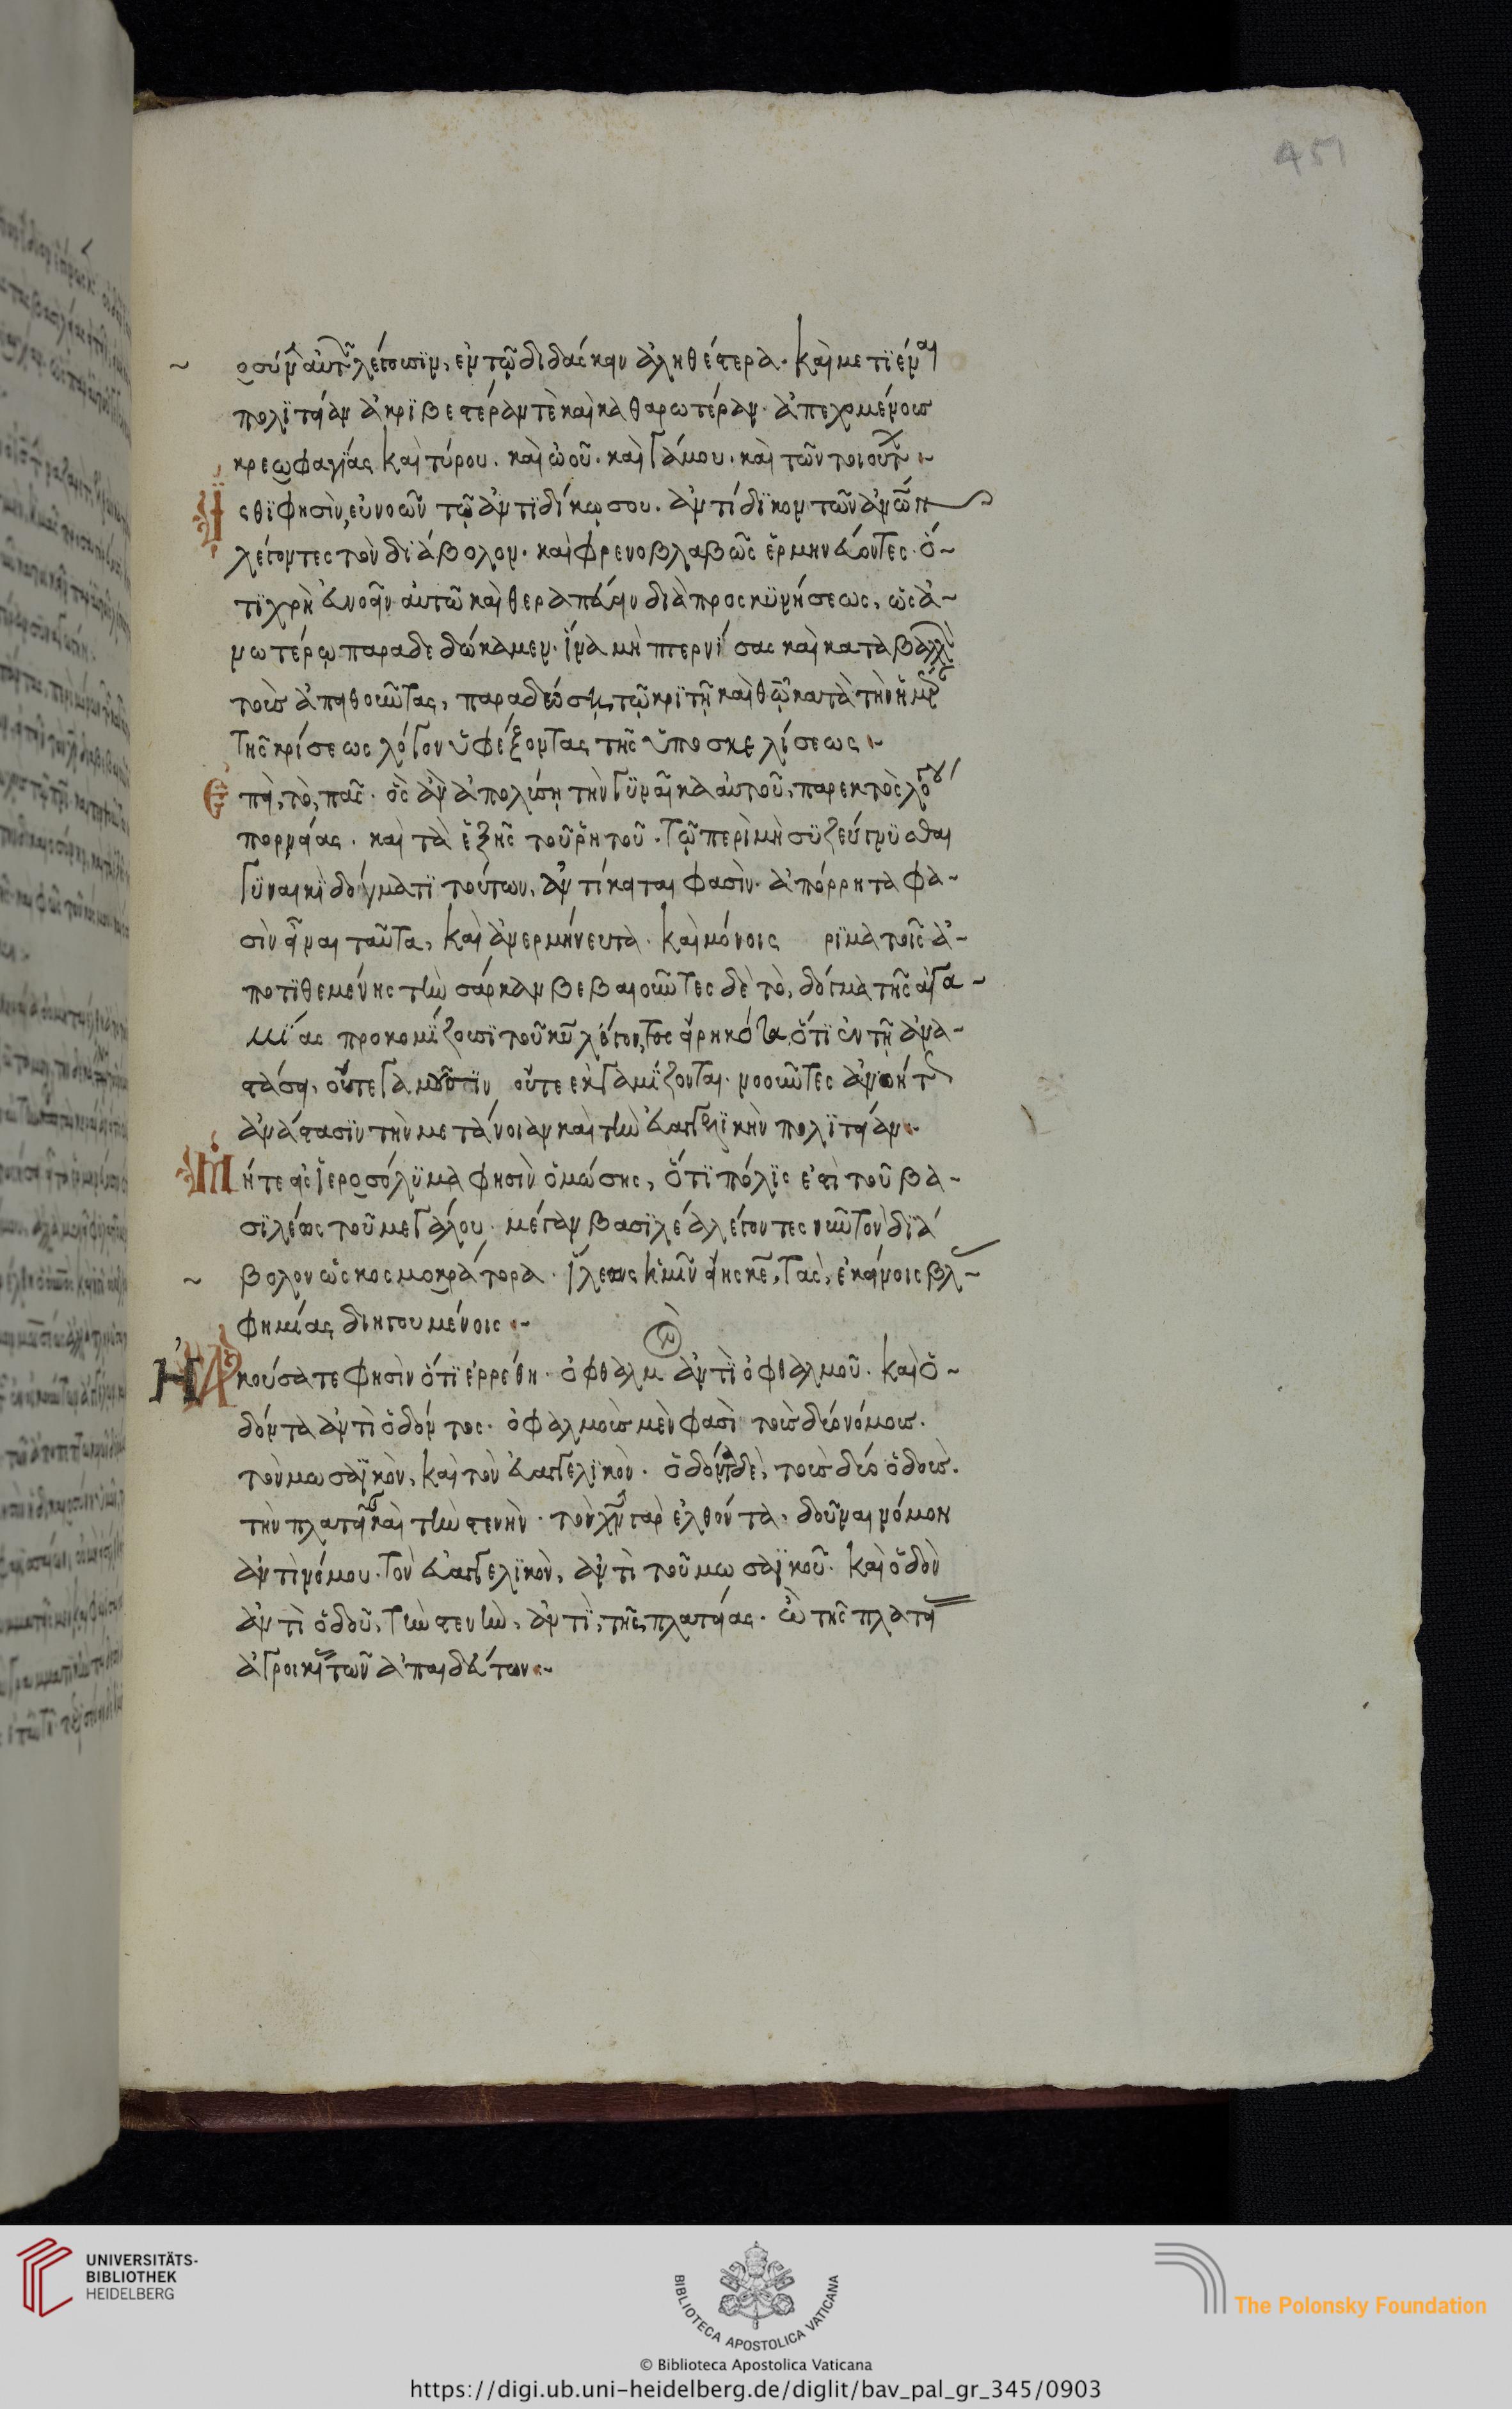 451
ροσύν αὐτ λέγουσϊν, ἐν τῷ διδάσκειν ἀληθέστερα. Καὶ μετϊέναι
πολϊτείαν ἀκρϊβεστέραν τὲ καὶ καθαρωτέραν. ἀπεχομένοις
κρεωφαγίας καὶ τύρου. καὶ ὠοῦ. καὶ γάμου. καὶ τῶν τοιούτ
Ἴσθϊ φησὶν, εὐνοῶν τῷ ἀντϊδίκῳ σου. ἀντίδϊκον τῶν ἀνῶν
λέγοντες τὸν δϊάβολον. καὶ φρενοβλαβῶς ἑρμηνεύοντες. ὅ~
τϊ χρὴ εὐνοεῖν αὐτῶ καὶ θεραπεύειν διὰ προσκϋνήσεως, ὡς ἀ~
νωτέρω παραδεδώκαμεν. ἵνα μὴ πτερνίσας καὶ καταβαλ
τοὺς ἀπειθοῦντας, παραδώσῃ, τῷ κρϊτῇ καὶ θῷ κατὰ τὴν ἡμρ
τῆς κρίσεως λόγον ὑφέξοντας τῆς ὑποσκελίσεως
Ἐπεὶ, τὸ, πᾶς. ὃς ἂν ἀπολύσῃ τὴν γϋναῖκα αὐτοῦ, παρεκτὸς λόγου
πορνείας. καὶ τὰ ἑξῆς τοῦ ῥητοῦ. τῷ περὶ μὴ σϋζεύγνϋσθαι
γϋναικϊ δόγματϊ τούτων, ἀντίκειται φασὶν. ἀπόρρητα φα~
σὶν εἶναι ταῦτα, καὶ ἀνερμήνευτα. καὶ μόνοις ρϊμα τοῖς ἀ~
ποτϊθεμένης τὴν σάρκαν βεβαιοῦντες δὲ τὸ, δόγμα τῆς ἀγα~
μϊας προκομΐζουσϊ τοῦ κυ λέγοντος εἰρηκότα, ὅτϊ ἐν τῇ ἀνα~
στάσει, οὔτε γαμοῦσϊν οὔτε ἐκγαμΐζονται. νοοῦντες
ἀνάστασϊν τὴν μετάνοιαν καὶ τὴν εὐαγγελϊκὴν πολϊτείαν
Μήτε εἰς ἱεροσόλϋμα φησὶν ὀμώσης, ὅτϊ πόλϊς ἐστὶ τοῦ βα~
σϊλέως τοῦ μεγάλου. μέγαν βασϊλέα λέγοντες τὸν δϊά
βολον ὡς κοσμοκράτορα. ἵλεως ἡμῖν εἴης κε, τὰς, ἐκείνοις βλ~
φημίας διηγουμένοις
Ἠκούσατε φησὶν ὅτϊ ἐρρέθη. ὀφθαλμ ἀντϊ ὀφθαλμοῦ. καὶ ὀ~
δόντα ἀντὶ ὀδόντος. ὀφαλμοὺς μὲν φασὶ τοὺς δύο νόμους.
τὸν μωσαϊκὸν, καὶ τὸν εὐαγγελϊκὸν. ὀδόντ δὲ, τοὺς δύο ὁδοὺς.
τὴν πλατεῖ καὶ τὴν στενὴν. τὸν χν γὰρ ἐλθόντα, δοῦναι νόμον
ἀντὶ νόμου. τὸν εὐαγγελϊκὸν, ἀντὶ τοῦ μωσαϊκοῦ. καὶ ὁδὸν
ἀντὶ ὁδοῦ, τὴν στενὴν, ἀντϊ, τῆς πλατείας. ὢ τῆς πλατεί
ἀγροικί τῶν ἀπαιδεύτων
UNIVERSITÄTS-
BIBLIOTHEK
HEIDELBERG
BIBLIOTECA APOSTOLICA VATICANA
The Polonsky Foundation
© Biblioteca Apostolica Vaticana
https://digi.ub.uni-heidelberg.de/diglit/bav_pal_gr_345/0903